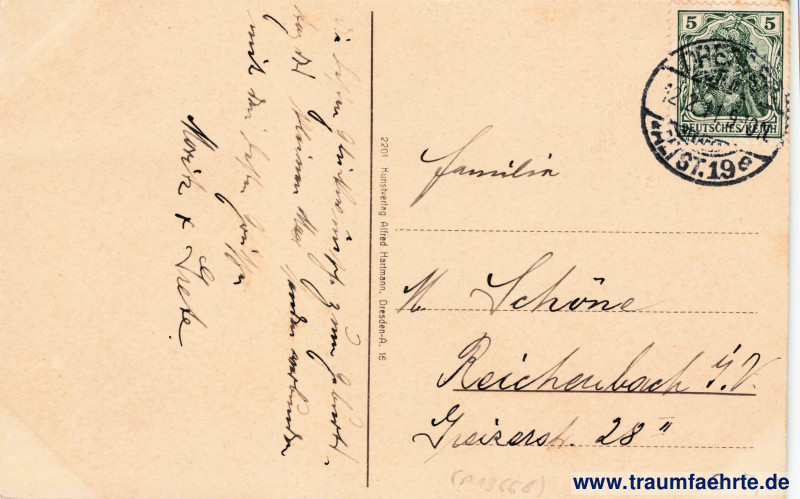 Die besten Glückwünsche zum Geburts-
tag der kleinen senden verbunden
mit den besten Grüßen
Moritz & Grete.
2201 Kunstverlag Alfred Hartmann, Dresden-A. 16
5 5
DEUTSCHES REICH
DRESDEN
ALTST. 19
Familie
M. Schöne
Reichenbach i/V.
Greizerstr. 28 II
(A13668)
www.traumfaehrte.de